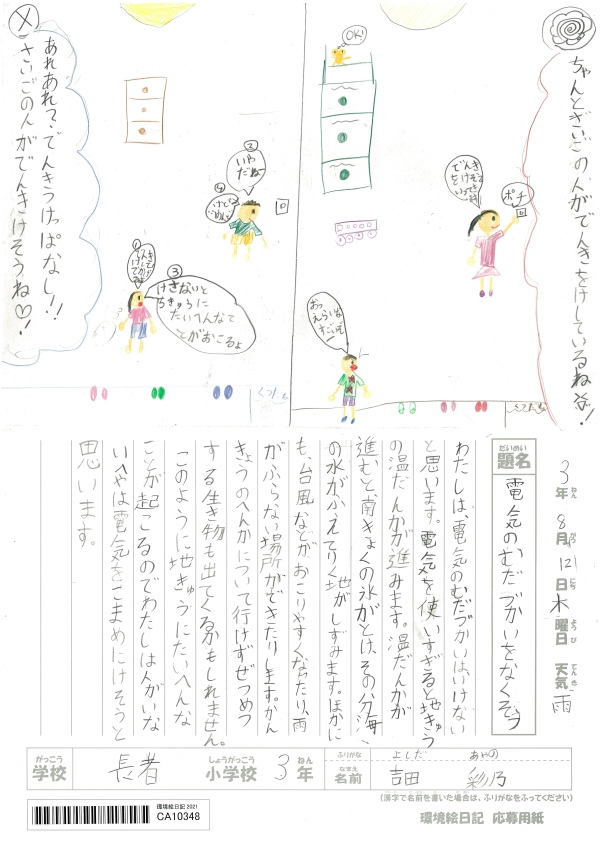 ちゃんとさいごの人がでんきをけしているね!
OK!
ポチ
おっ
えらいな
すごいぞ
ー
くつだな
あれあれ?・でんきつけっぱなし!!
さいごの人がでんきけそうね♡!
②
いや
だね
④
①
③
けさないと
ちきゅうに
たいへんなこ
とがおこるよ
くつだな
3年 8月 12日 木曜日 天気 雨
ねん がつ にち ようび てんき
だいめい
題名
電気のむだづかいをなくそう
わたしは、電気のむだづかいはいけない
と思います。電気を使いすぎると地きゅう
の温だんかが進みます。温だんかが
進むと南きょくの氷がとけ、その分海
の水がふえてりく地がしずみます。ほかに
も、台風などがおこりやすくなったり、雨
がふらない場所ができたりします。かん
きょうのへんかについて行けずぜつめつ
する生き物も出てくるかもしれません。
このように地きゅうにたいへんな
ことが起こるのでわたしは人がいな
いへやは電気をこまめにけそうと
思います。
がっこう
学校
長者
しょうがっこう
小学校
3
ねん
年
ふりがな
よしだ あやの
なまえ
名前
吉田 彩乃
(漢字で名前を書いた場合は、ふりがなをふってください)
環境絵日記 2021
CA10348
環境絵日記 応募用紙